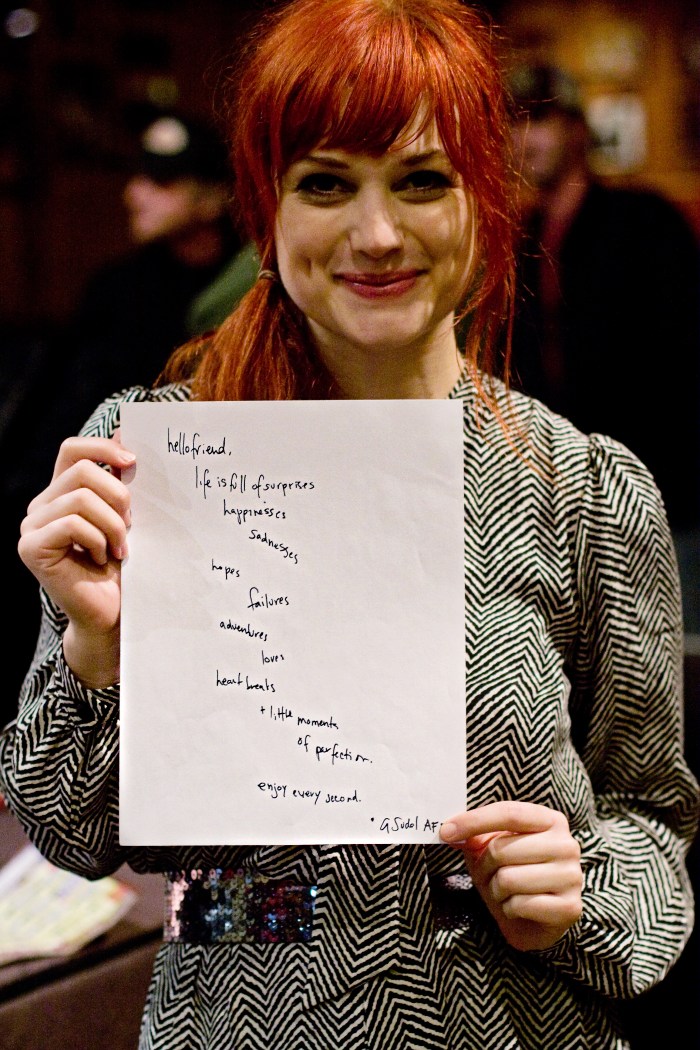 hellofriend,
life is full of surprises
happinesses
sadnesses
hopes
failures
adventures
loves
heartbreaks
+ little moments
of perfection.
enjoy every second.
• G Sudol AF